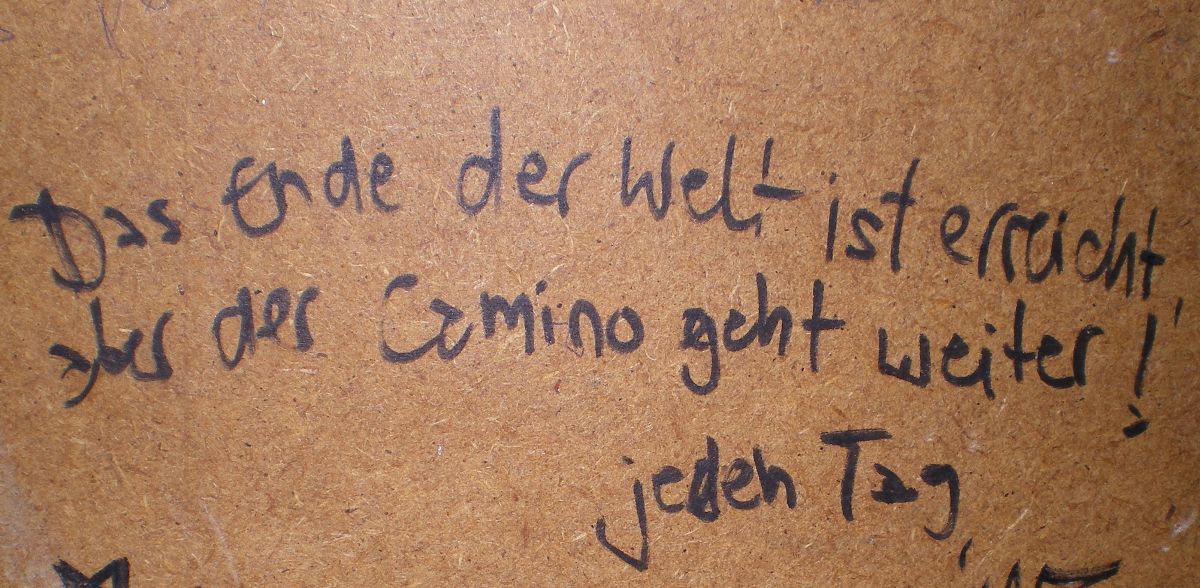 Das Ende der Welt ist erreicht,
aber der Camino geht weiter!
jeden Tag,